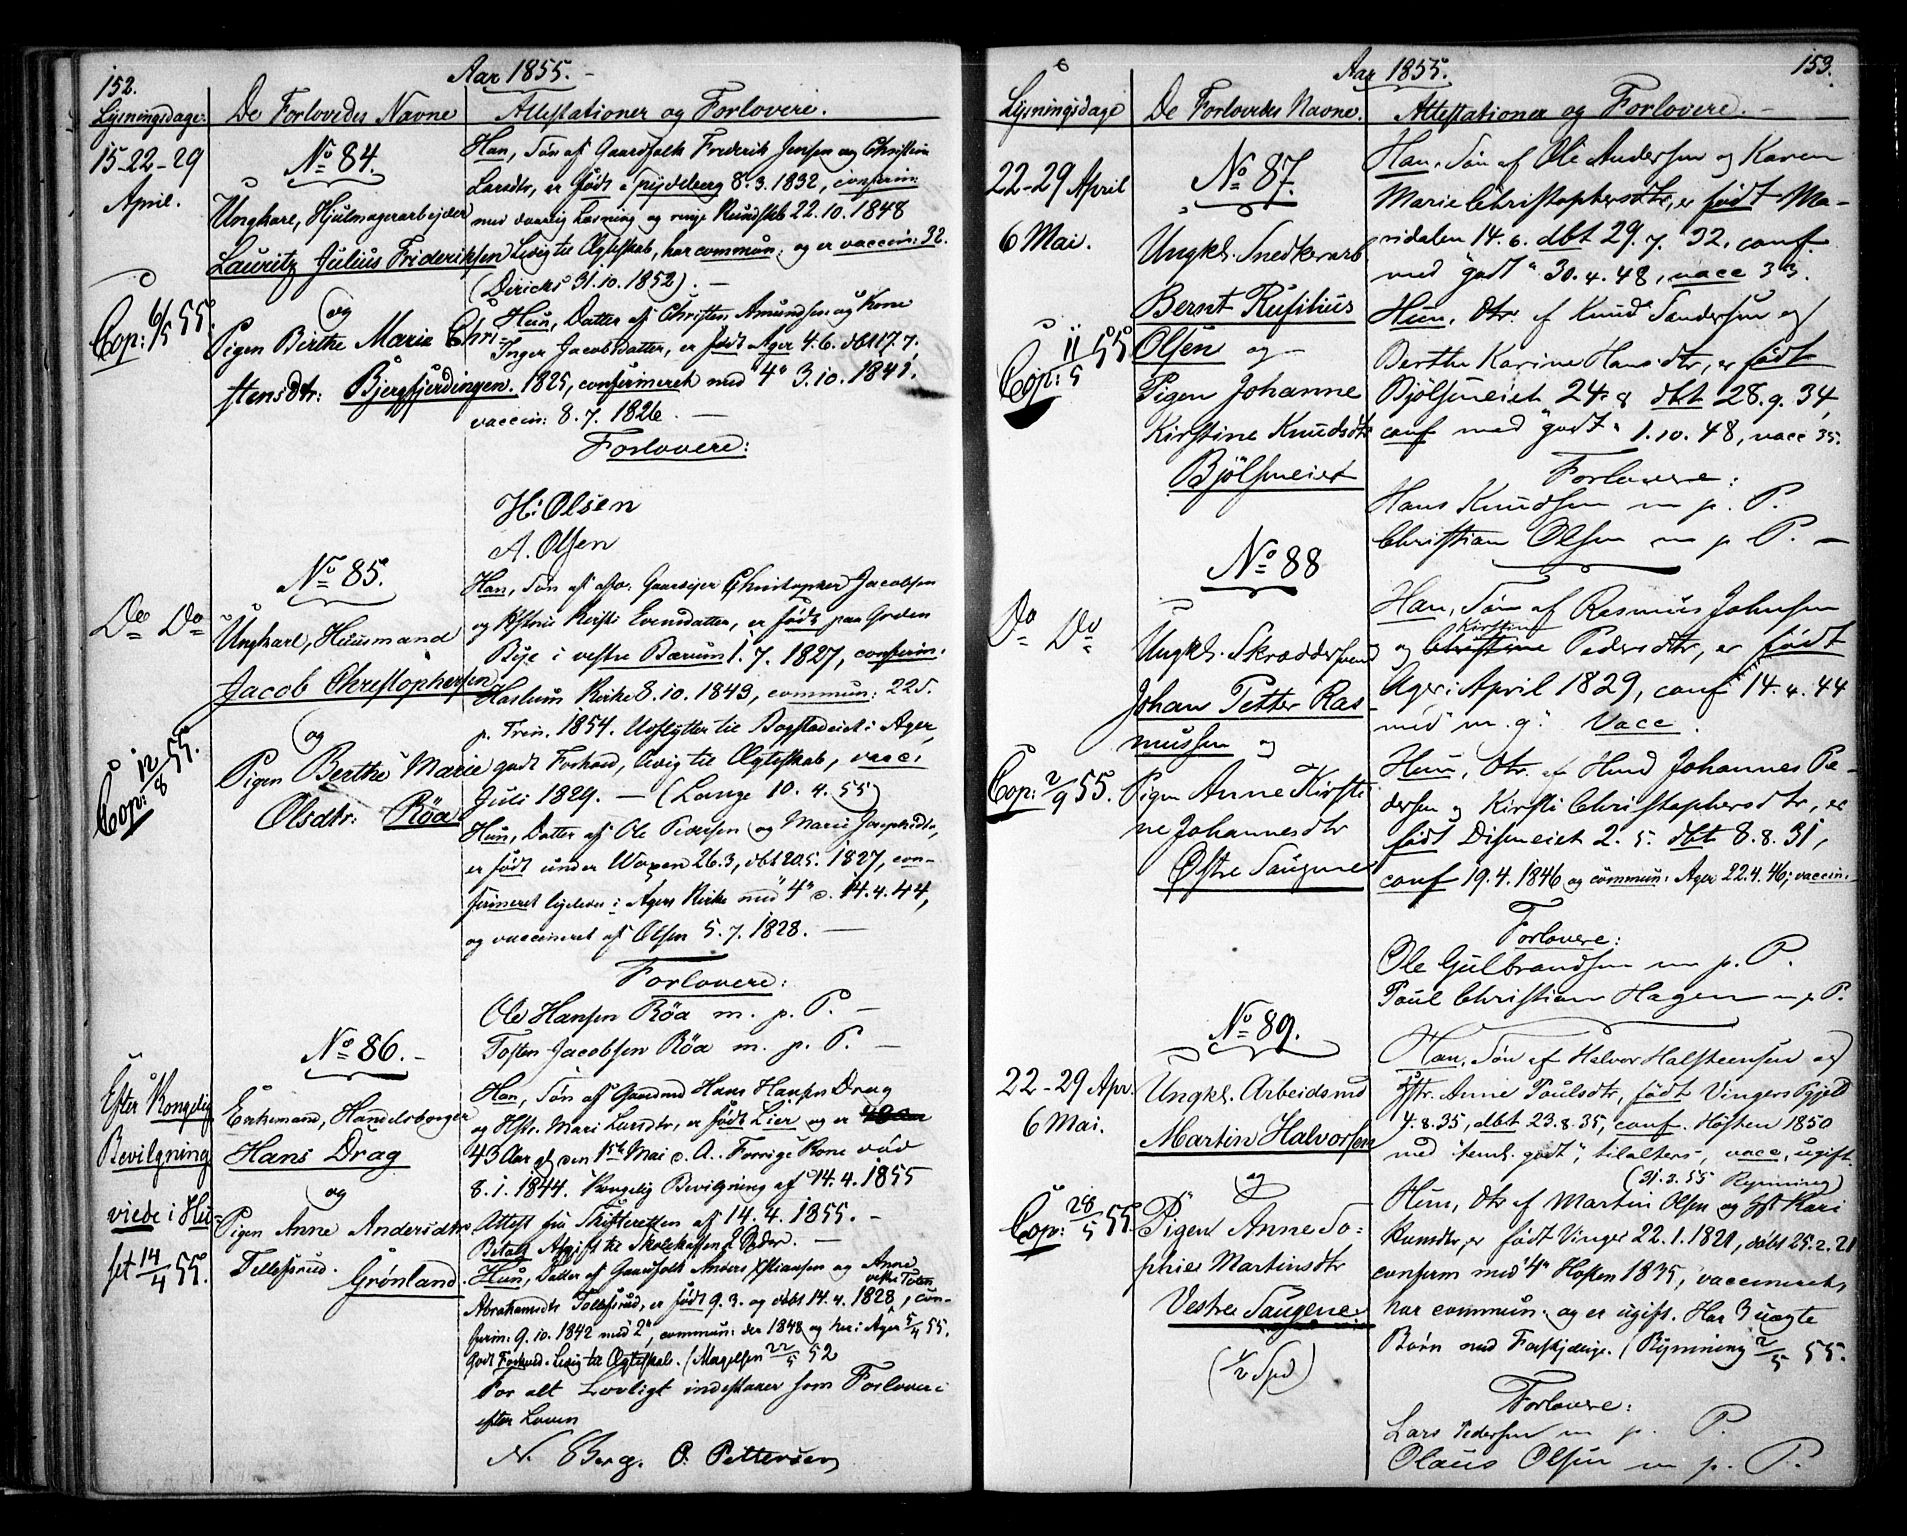 152.
Aar 1855.
Lysningsdage:
De Forlovedes Navne
Attestationer og Forlovere.
15-22-29
April.
No 84.
Ungkarl, Hjulmagerarbejder
Lauritz Julius Frideriksen
og
Pigen Birthe Marie Chri-
stensdtr: Bjergfjerdingen.
Cop: 6/5 55.
Han, Søn af Gaardfolk Frederik Jensen og Christin
Larsdtr, er født i Spydeberg 8.3.1832, confirm:
med daarlig Læsning og ringe Kundskab 22.10.1848
Ledig til Ægteskab, har commun: og er vaccin: 32.
(Dericks 31.10.1852). —
Hun, Datter af Christen Amundsen og Kone
Inger Jacobsdatter, er født Ager 4.6. dbt 17.7.
1825, confirmeret med "4" 3.10.1841.
vaccin: 8.7.1826. —
Forlovere:
H: Olsen
A. Olsen
Do Do
No 85.
Ungkarl, Huusmand
Jacob Christophersen
og
Pigen Berthe Marie
Olsdtr: Røa
Cop: 12/8 55.
Han, Søn af afdø. Gaardejer Christopher Jacobsen
og Hstrue Kirsti Evensdatter, er født paa Gorden
Bye i vestre Bærum 1.7.1827, confirm.
Haslum Kirke 8.10.1843, commun: 22 S.
p. Trin. 1854. Udflytter til Bogstadeiet i Ager,
godt Forhold, ledig til Ægteskab, vacc.
Juli 1829. — (Lange 10.4.55)
Hun, Datter af Ole Pedersen og Marie Josephsdtr,
er født under Woxen 26.3, dbt 20.5.1827, con-
firmeret ligeledes i Agers Kirke med "4" d. 14.4.44,
og vaccineret af Olsen 5.7.1828. —
Forlovere:
Ole Hansen Röa m. p. P. —
Tosten Jacobsen Röa m. p. P. —
Efter Kongelig
Bevilgning
viede i Hu
set 14/4 55.
No 86. —
Enkemand, Handelsborger
Hans Drag
og
Pigen Anne Andersdtr
Tollefsrud.
Grønland.
Han, Søn af Gaardmd Hans Hansen Drag
og Hstr. Mari Larsdtr, er født Lier og er
43 Aar gl den 1ste Mai d. A. Forrige Kone död
8.1.1844. Kongelig Bevilgning af 14.4.1855
Attest fra Skifteretten af 14.4.1855. —
Betalt Afgift til Skolekassen 2 Spdr. —
Hun, Datter af Gaardfolk Anders Xstiansen og Anne
Abrahamsdtr Tollefsrud, er født vestre Toten 9.3. og döbt 14.4.1828, con-
firm: 9.10.1842 med "2", commun: der 1848 og her i Ager 5/4 55.
Godt Forhold. Ledig til Ægteskab. (Magelsen 22/5 52
For alt Lovligt indestaaer som Forlovere
efter Loven
N. Berg. O. Pettersen
153.
Aar 1855.
Lysningsdage
De Forlovedes Navne.
Attestationer og Forlovere. —
22-29 April
6 Mai.
No 87.
Ungkl. Snedkerarb
Bernt Rufilius
Olsen og
Pigen Johanne
Kirstine Knudsdtr
Bjölsmeiet
Cop: 11/5 55
Han, Søn af Ole Andersen og Karen
Marie Christophersdtr, er født Ma-
ridalen 14.6. dbt 29.7.32, conf.
med "godt" 30.4.48, vacc 33.
Hun, Dtr. af Knud Sandersen og
Berthe Karine Hansdtr, er født
Bjölsmeiet 24.8 dbt 28.9.34,
conf med "godt" 1.10.48, vacc 35.
Forlovere:
Hans Knudsen m. p. P.
Christian Olsen m p P. —
Do Do
No 88
Ungkl. Skræddersvend
Johan Petter Ras-
mussen og
Pigen Anne Kirsti
ne Johannesdtr
Østre Saugene
Cop: 2/9 55.
Han, Søn af Rasmus Johnsen
og Kirstine Pedersdtr, er født
Ager i April 1829, conf 14.4.44
med "m. g." Vacc.
Hun, Dtr. af Hmd Johannes Pe-
dersen og Kirsti Christophersdtr, er
født Dismeiet 2.5. dbt 8.8.31,
conf 19.4.1846 og commun: Ager 22.4.46; vaccin:
Forlovere:
Ole Gulbrandsen m p. P.
Poul Christian Hagen m p P.
22-29 Apr.
6 Mai.
No 89.
Ungkl. Arbeidsmd
Martin Halvorsen
og
Pigen Anne So-
phie Martinsdtr
Vestre Saugene
(1/2 Spd)
Cop: 28/5 55.
Han, Søn af Halvor Halsteensen og
Hstr. Anne Poulsdtr, født Vingers Pgjeld
4.8.35, dbt 23.8.35, conf. Høsten 1850
med "teml. godt", tilalters, vacc, ugift.
(31.3.55 Rynning)
Hun, Dtr af Martin Olsen og Hst Kari
Knudsdtr, er født Vinger 22.1.1821, döbt 25.2.21
confirm med "4" Høsten 1835, vaccineret,
har commun. og er ugift. Har 3 uægte
Børn med Forskjellige. (Rynning 2/5 55.
Forlovere:
Lars Pedersen m p. P.
Olaus Olsen m p. P.